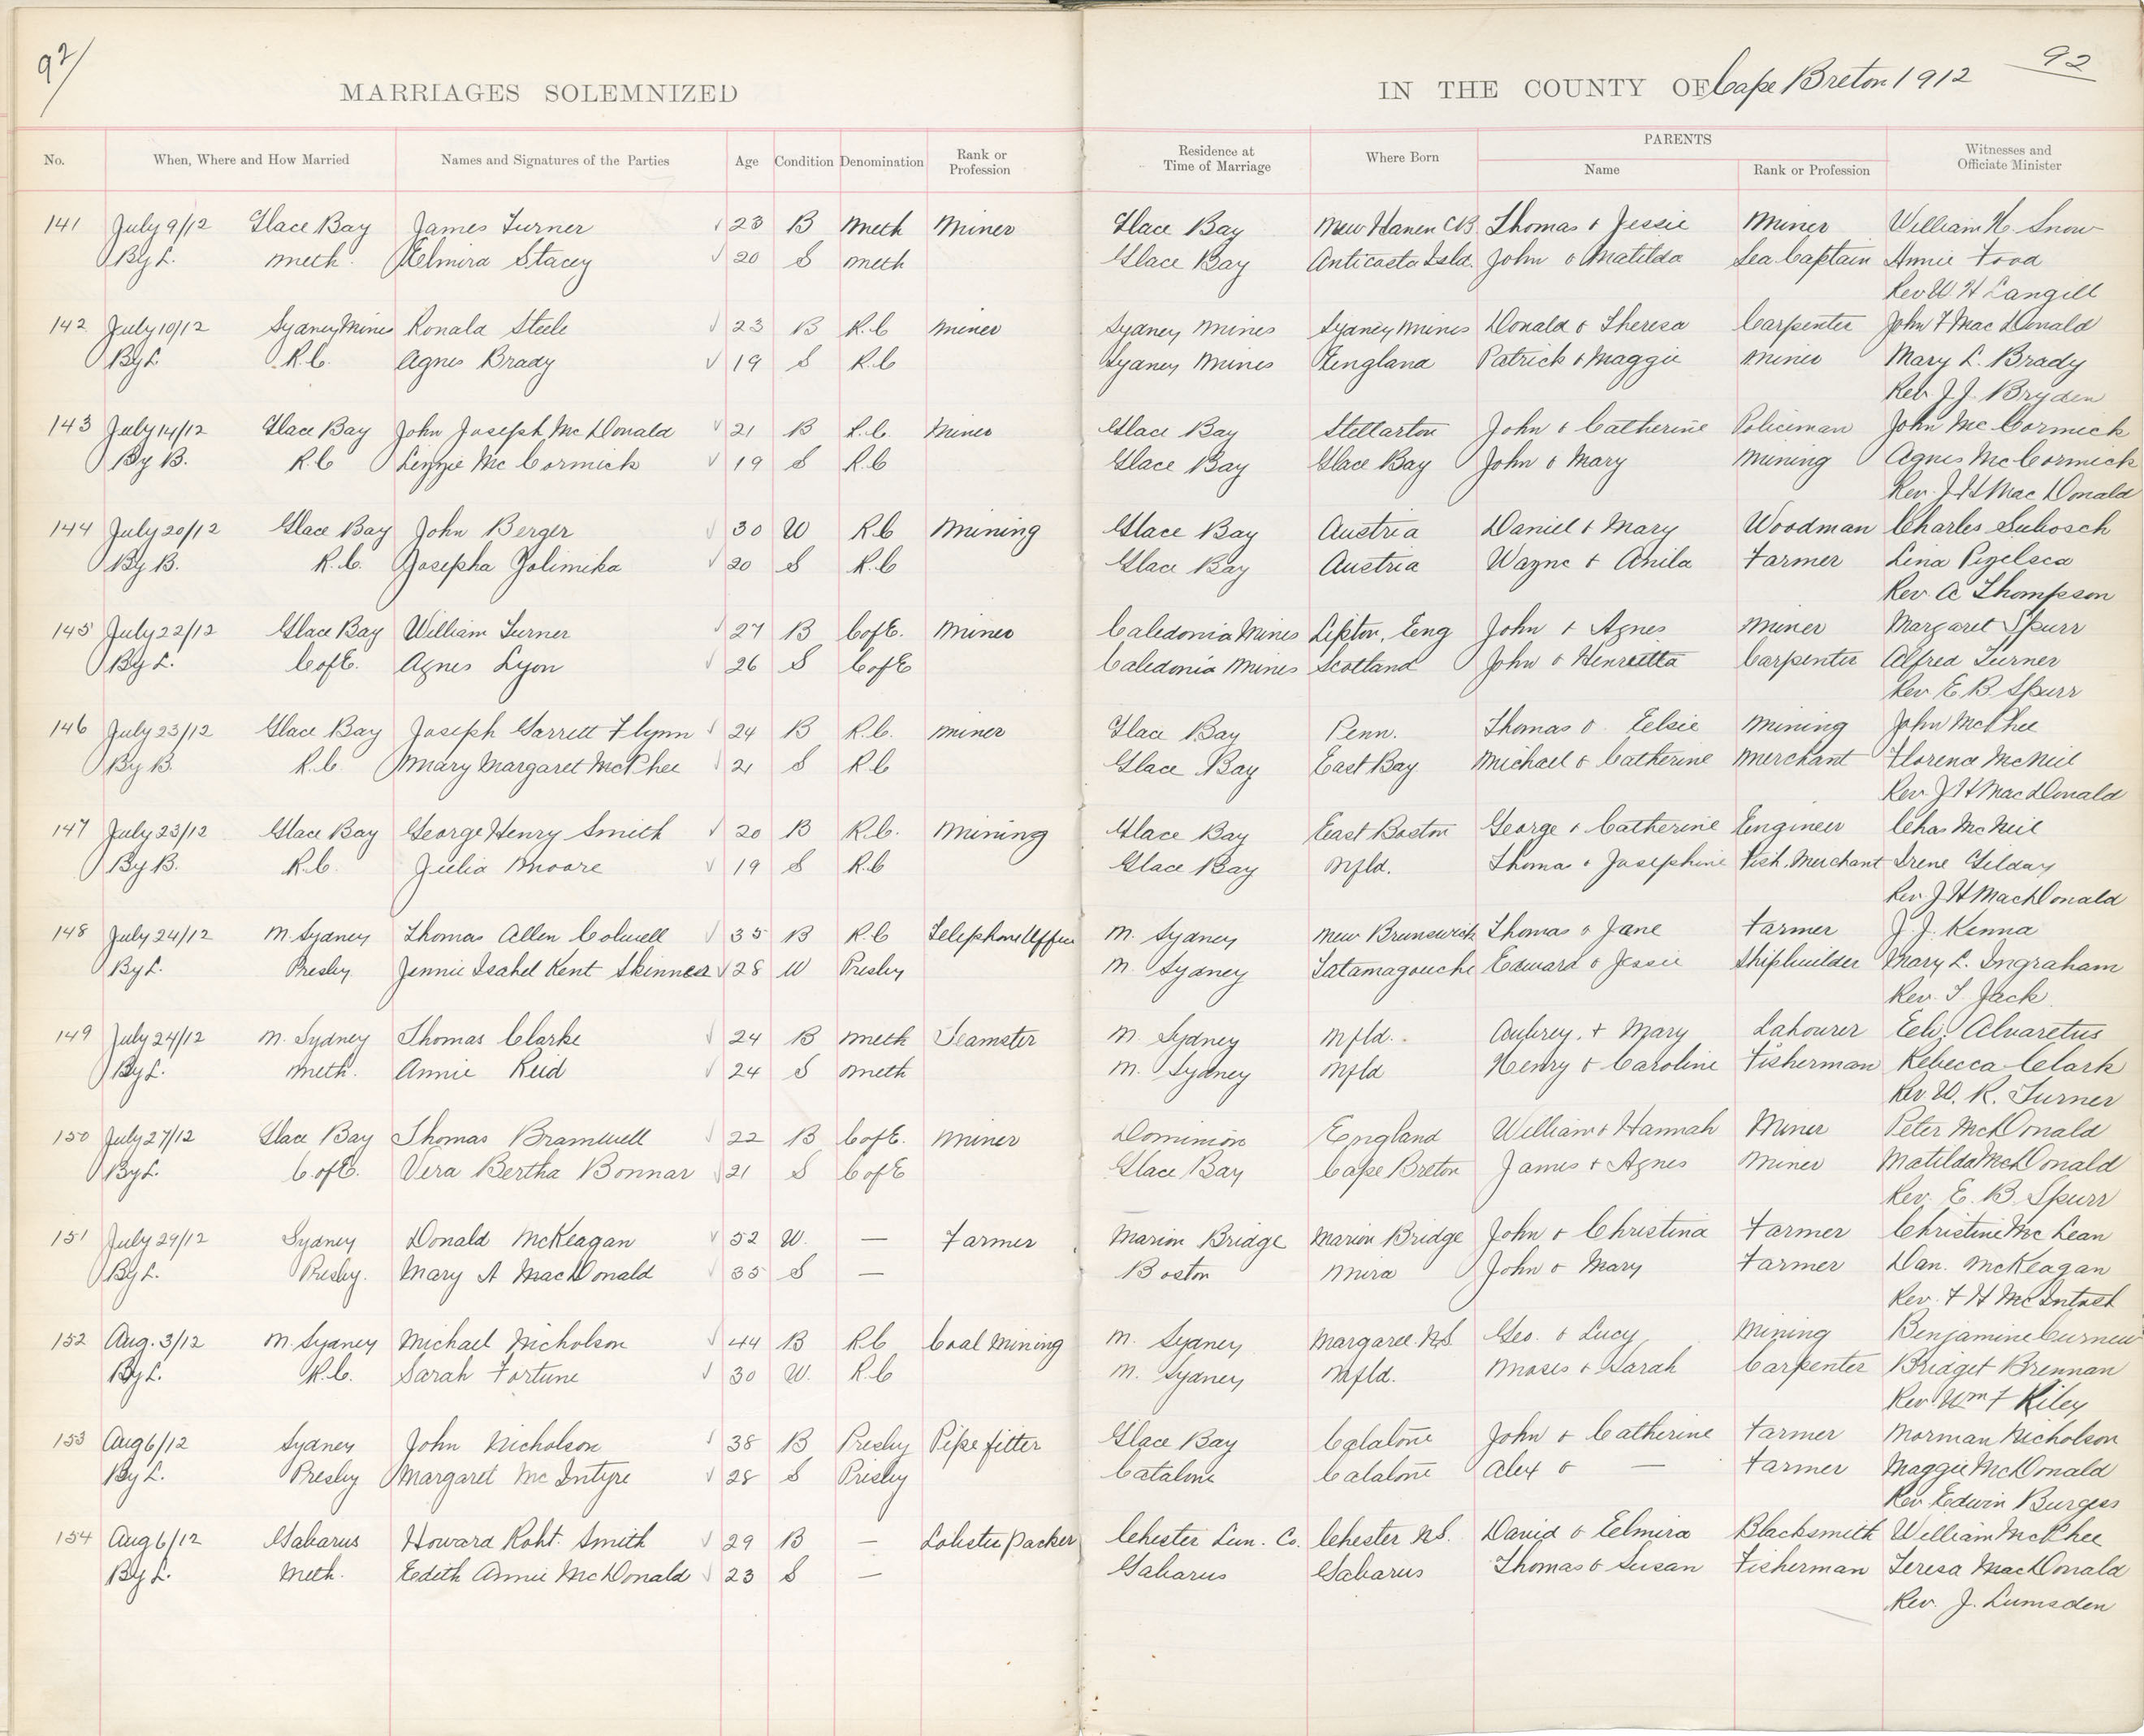 92/
92
MARRIAGES SOLEMNIZED IN THE COUNTY OF Cape Breton 1912
No. When, Where and How Married Names and Signatures of the Parties Age Condition Denomination Rank or Profession Residence at Time of Marriage Where Born PARENTS Name Rank or Profession Witnesses and Officiate Minister
141 July 9/12 Glace Bay James Turner 23 B Meth Miner Glace Bay New Haven CB Thomas & Jessie Miner William H. Snow
By L. Meth. Elmira Stacey 20 S Meth Glace Bay Anticosta Isld. John & Matilda Sea Captain Annie Food
Rev W H Langill
142 July 10/12 Sydney Mines Ronald Steele 23 B R.C Miner Sydney Mines Sydney Mines Donald & Theresa Carpenter John F MacDonald
By L R.C. Agnes Brady 19 S R.C Sydney Mines England Patrick & Maggie Miner Mary L. Brady
Rev. J.J. Bryden
143 July 14/12 Glace Bay John Joseph McDonald 21 B R.C. Miner Glace Bay Stellarton John & Catherine Policeman John McCormick
By B. R.C Lennie McCormick 19 S R.C Glace Bay Glace Bay John & Mary Mining Agnes McCormick
Rev. J H MacDonald
144 July 20/12 Glace Bay John Berger 30 W R.C Mining Glace Bay Austria Daniel & Mary Woodman Charles Subosch
By B. R.C. Josepha Jolimika 20 S R.C Glace Bay Austria Wazne & Anila Farmer Lina Pizelsca
Rev. A Thompson
145 July 22/12 Glace Bay William Turner 27 B C of E. Miner Caledonia Mines Lipton, Eng John & Agnes Miner Margaret Spurr
By L. C of E. Agnes Lyon 26 S C of E Caledonia Mines Scotland John & Henrietta Carpenter Alfred Turner
Rev E. B. Spurr
146 July 23/12 Glace Bay Joseph Garrett Flynn 24 B R.C. Miner Glace Bay Penn. Thomas & Eelsie Mining John McPhee
By B. R.C. Mary Margaret McPhee 21 S R.C Glace Bay East Bay Michael & Catherine Merchant Florence McNeil
Rev. J H MacDonald
147 July 23/12 Glace Bay George Henry Smith 20 B R.C. Mining Glace Bay East Boston George & Catherine Engineer Chas McNeil
By B. R.C. Julia Moore 19 S R.C Glace Bay Nfld. Thoma & Josephine Fish. Merchant Irene Gilday
Rev J H MacDonald
148 July 24/12 N. Sydney Thomas Allen Colwell 35 B R.C Telephone Office N. Sydney New Brunswick Thomas & Jane Farmer J. J. Kenna
By L. Presby Jennie Isabel Kent Skinner 28 W Presby N. Sydney Tatamagouche Edward & Jessie Shipbuilder Mary L. Ingraham
Rev. T. Jack
149 July 24/12 N. Sydney Thomas Clarke 24 B Meth Teamster N. Sydney Nfld. Aubrey. & Mary Labourer Eeli Alvaretus
By L. Meth. Annie Reid 24 S Meth N. Sydney Nfld Henry & Caroline Fisherman Rebecca Clark
Rev. W. R. Turner
150 July 27/12 Glace Bay Thomas Bramwell 22 B C of E. Miner Dominion England William & Hannah Miner Peter McDonald
By L. C. of E. Vera Bertha Bonnar 21 S C of E Glace Bay Cape Breton James & Agnes Miner Matilda McDonald
Rev. E. B. Spurr
151 July 29/12 Sydney Donald McKeagan 52 W. — Farmer Marion Bridge Marion Bridge John & Christina Farmer Christine McLean
By L. Presby. Mary A MacDonald 35 S — Boston Mira John & Mary Farmer Dan. McKeagan
Rev. F H McIntosh
152 Aug. 3/12 N. Sydney Michael Nicholson 44 B R.C Coal Mining N. Sydney Margaree N.S Geo. & Lucy Mining Benjamine Curnew
By L. R.C. Sarah Fortune 30 W. R.C N. Sydney Nfld. Moses & Sarah Carpenter Bridget Brennan
Rev. Wm F Kiley
153 Aug 6/12 Sydney John Nicholson 38 B Presby Pipe fitter Glace Bay Catalone John & Catherine Farmer Norman Nicholson
By L. Presby Margaret McIntyre 28 S Presby Catalone Catalone Alex & — Farmer Maggie McDonald
Rev. Edwin Burgess
154 Aug 6/12 Gabarus Howard Robt. Smith 29 B — Lobster packer Chester Lun. Co. Chester N.S. David & Eelmira Blacksmith William McPhee
By L. Meth. Edith Annie McDonald 23 S — Gabarus Gabarus Thomas & Susan Fisherman Teresa MacDonald
Rev. J. Lumsden